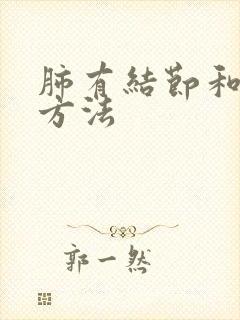 肺有結節和
方法
郭一然